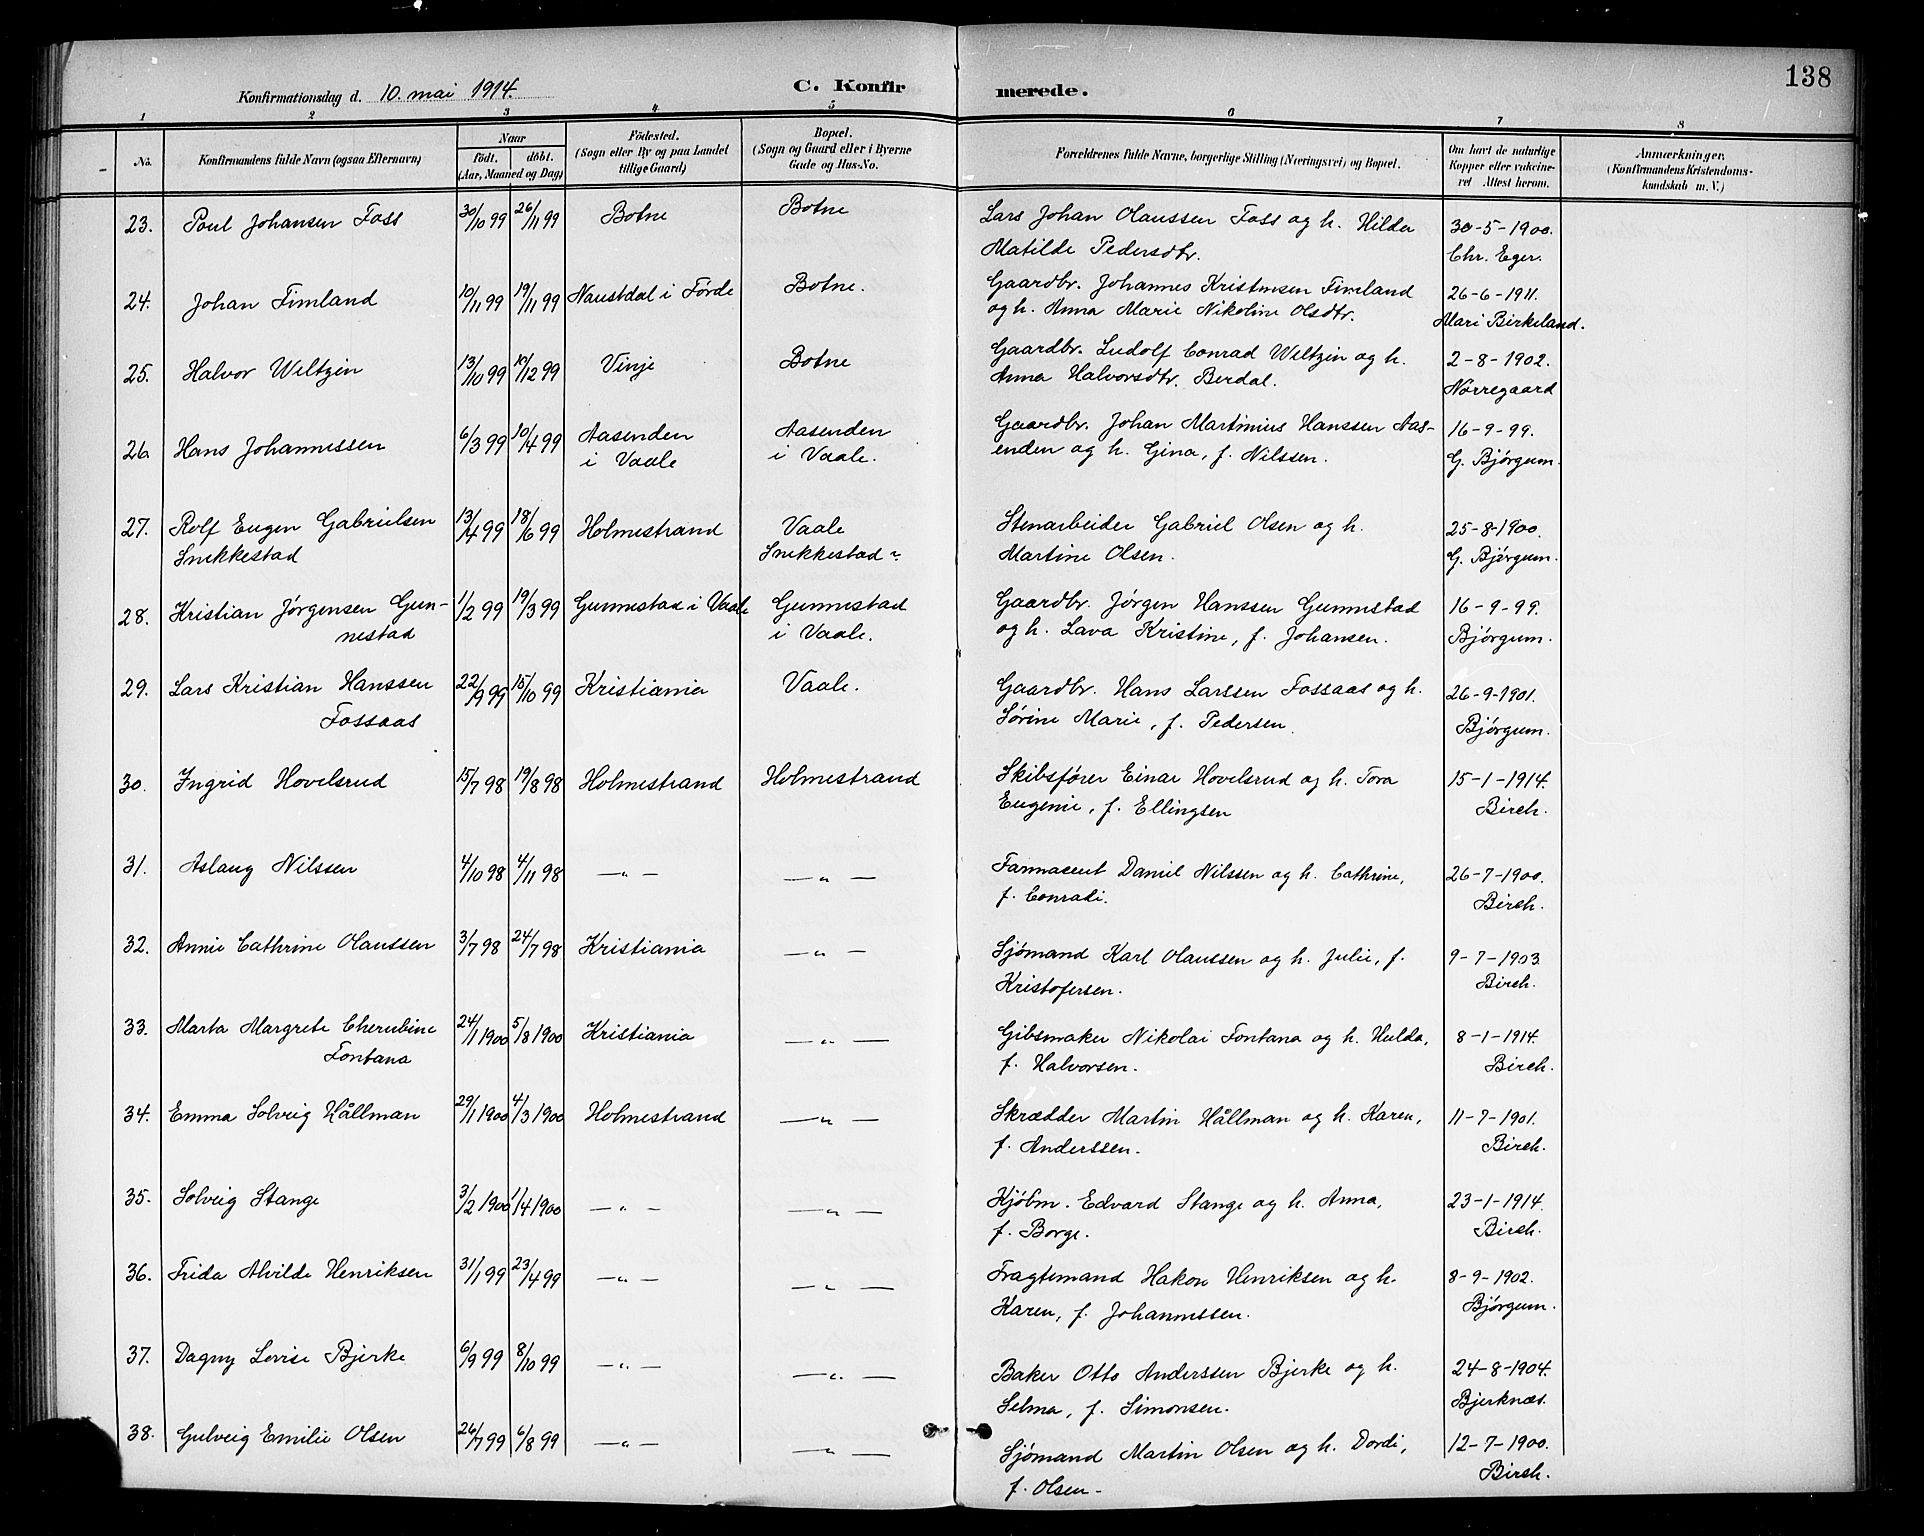 138
Konfirmationsdag d. 10. mai 1914. C. Konfirmerede.
1 2 3 4 5 6 7 8
No.
Konfirmandens fulde Navn (ogsaa Efternavn)
Naar
födt. döbt.
(Aar, Maaned og Dag)
Födested.
(Sogn eller By og paa Landet
tillige Gaard.)
Bopæl.
(Sogn og Gaard eller i Byerne
Gade og Hus-No.
Forældrenes fulde Navne, borgerlige Stilling (Næringsvei) og Bopæl.
Om havt de naturlige
Kopper eller vakcine-
ret Attest herom.
Anmærkninger.
(Konfirmandens Kristendoms-
kundskab m. V.)
23. Poul Johansen Foss 30/10 99 26/11 99 Botne Botne Lars Johan Olaussen Foss og h. Hilda 30-5-1900.
Matilde Pedersdtr. Chr. Eger.
24. Johan Fimland 10/11 99 19/11 99 Naustdal i Førde Botne. Gaardbr. Johannes Kristensen Fimland 26-6-1911.
og h. Anna Marie Nikoline Olsdtr. Mari Birkeland.
25. Halvor Weltzin 13/10 99 10/12 99 Vinje Botne Gaardbr. Ludolf Conrad Weltzin og h. 2-8-1902.
Anna Halvorsdtr. Berdal. Nørregaard
26 Hans Johannessen 6/3 99 10/4 99 Aasenden Aasenden Gaardbr. Johan Martinius Hanssen Aas- 16-9-99.
i Vaale i Vaale. enden og h. Gina, f. Nilssen. G. Bjørgum.
27. Rolf Eugen Gabrielsen 13/4 99 18/6 99 Holmestrand Vaale Stenarbeider Gabriel Olsen og h. 25-8-1900.
Snekkestad Snekkestad Martine Olsen. G. Bjørgum.
28. Kristian Jørgensen Gun- 1/2 99 19/3 99 Gunnestad i Vaale Gunnestad Gaardbr. Jørgen Hanssen Gunnestad 16-9-99.
nestad i Vaale. og h. Lava Kristine, f. Johansen. Bjørgum.
29. Lars Kristian Hanssen 22/9 99 15/10 99 Kristiania Vaale. Gaardbr. Hans Larssen Fossaas og h. 26-9-1901.
Fossaas Sørine Marie, f. Pedersen. Bjørgum.
30. Ingrid Hovelsrud 15/7 98 19/8 98 Holmestrand Holmestrand Skibsfører Einar Hovelsrud og h. Tora 15-1-1914.
Eugenie, f. Ellingsen Birch.
31. Aslaug Nilssen 4/10 98 4/11 98 —„— —„— Farmaceut Daniel Nilssen og h. Cathrine, 26-7-1900.
f. Conradi. Birch.
32. Annie Cathrine Olaussen 3/7 98 24/7 98 Kristiania —„— Sjømand Karl Olaussen og h. Julie, f. 9-7-1903
Kristofersen. Birch.
33. Marta Margrete Cherubine 24/1 1900 5/8 1900 Kristiania —„— Gibsmaker Nikolai Fontana og h. Hulda, 8-1-1914.
Fontana f. Halvorsen. Birch.
34. Emma Solveig Hållman 29/1 1900 4/3 1900 Holmestrand —„— Skrædder Martin Hållman og h. Karen, 11-7-1901.
f. Anderssen. Birch.
35. Solveig Stange 3/2 1900 1/4 1900 —„— —„— Kjøbm. Edvard Stange og h. Anna, 23-1-1914.
f. Borge. Birch.
36. Frida Alvilde Henriksen 31/1 99 23/4 99 —„— —„— Fragtemand Hakon Henriksen og h. 8-9-1902.
Karen, f. Johannessen. Bjørgum.
37. Dagny Lovise Bjerke 6/9 99 8/10 99 —„— —„— Baker Otto Anderssen Bjerke og h. 24-8-1904.
Selma, f. Simonsen. Bjerknæs.
38. Gulveig Emilie Olsen 26/7 99 6/8 99 —„— —„— Sjømand Martin Olsen og h. Dordi, 12-7-1900.
f. Olsen- Birch.